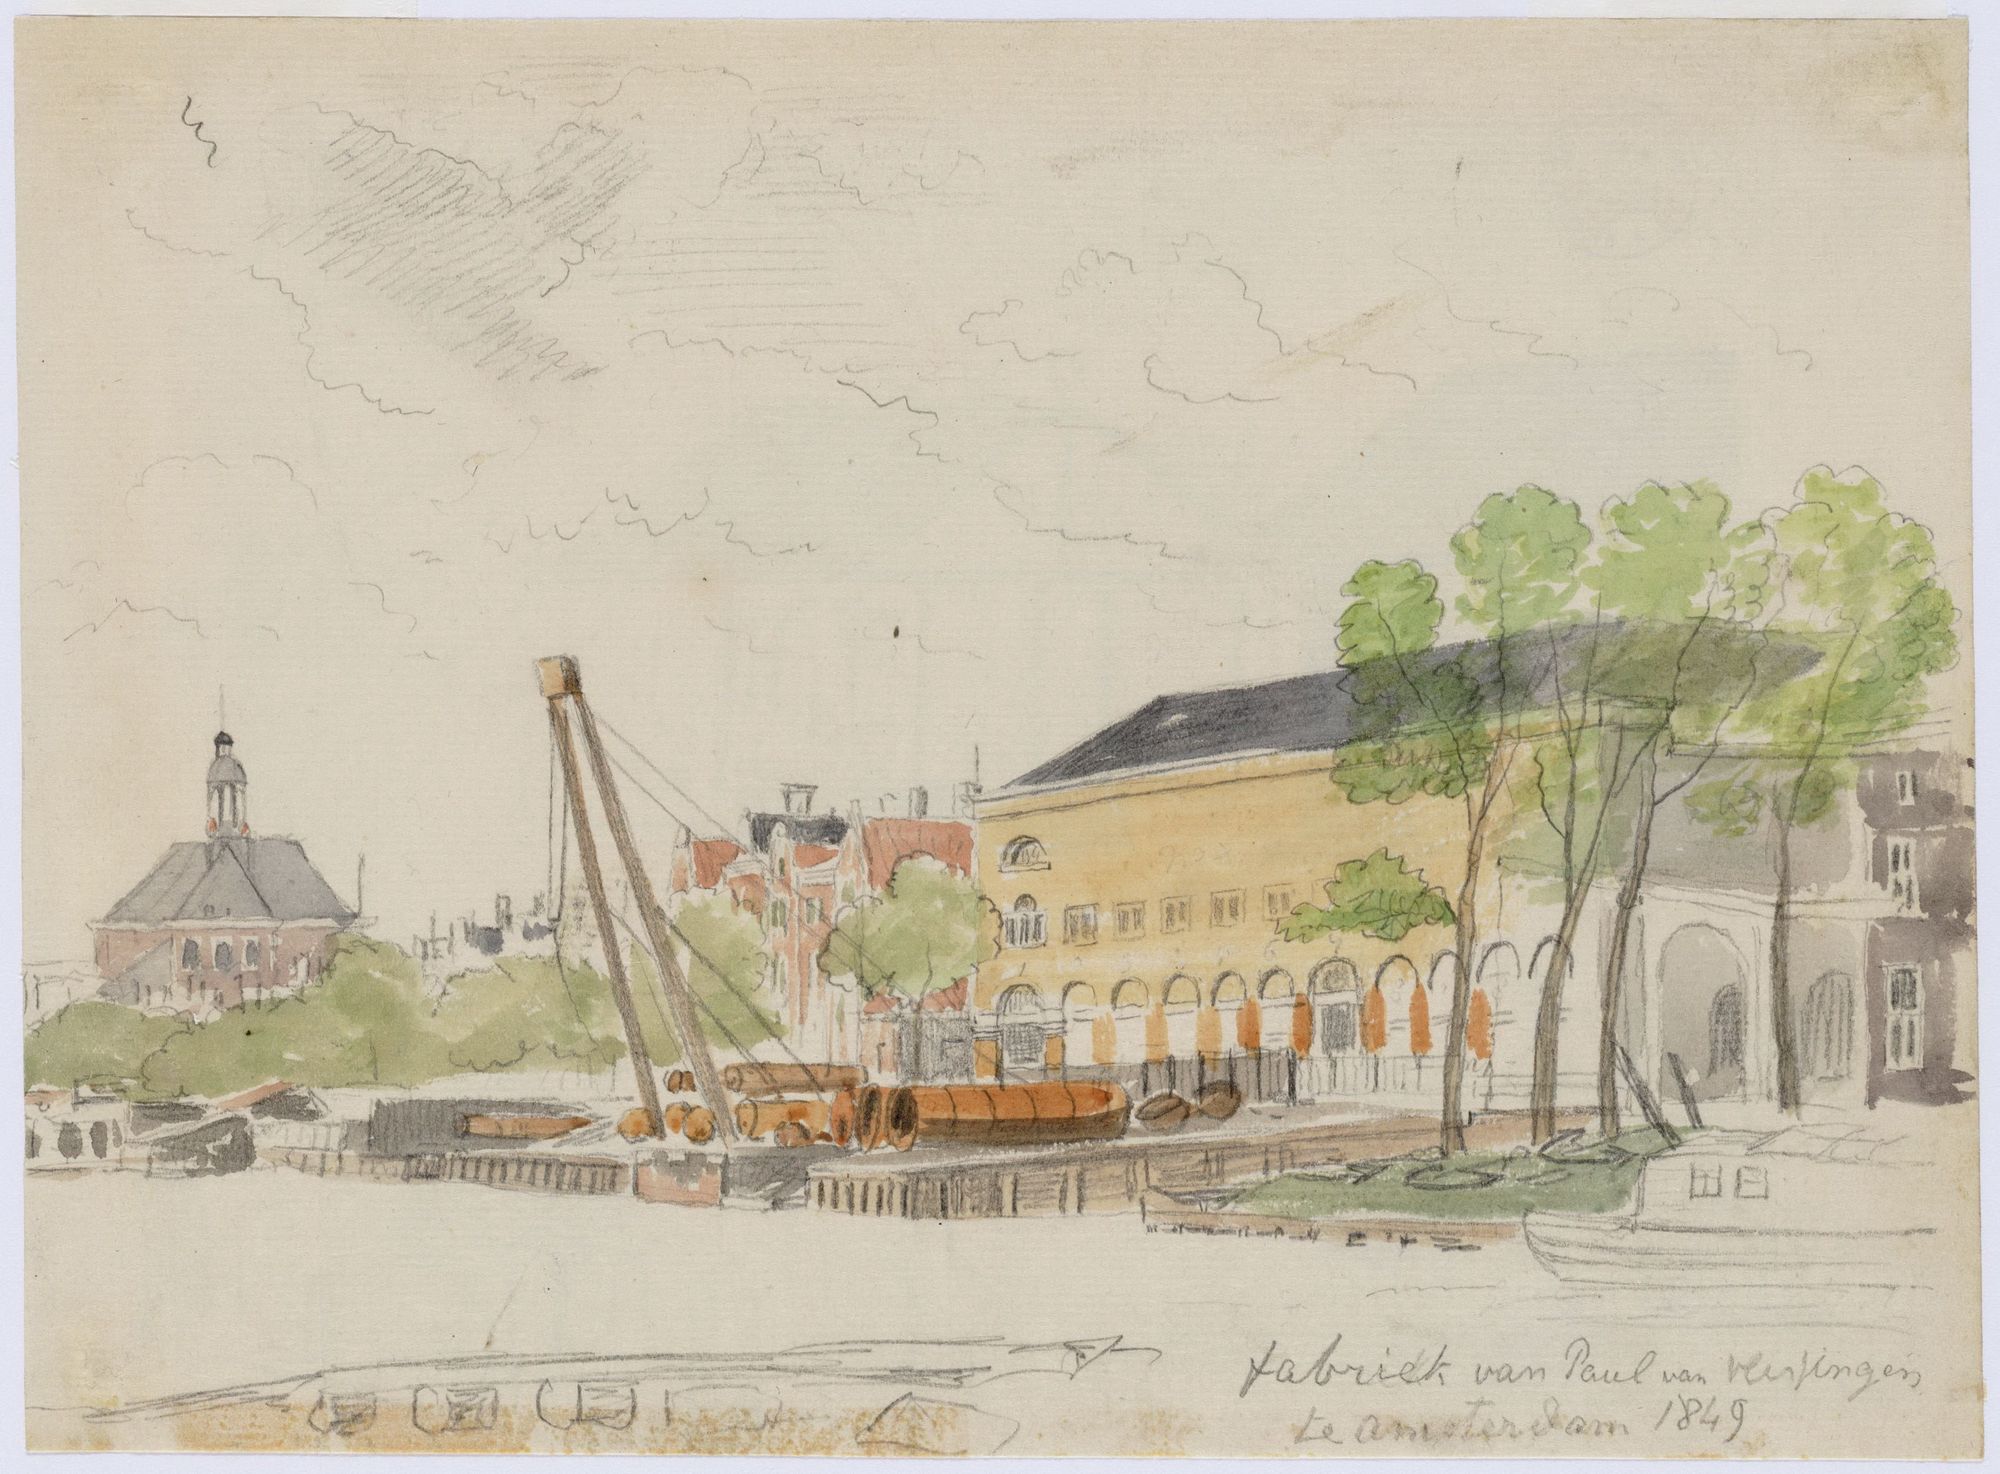 fabriek van Paul van Vlissingen
te Amsterdam 1849